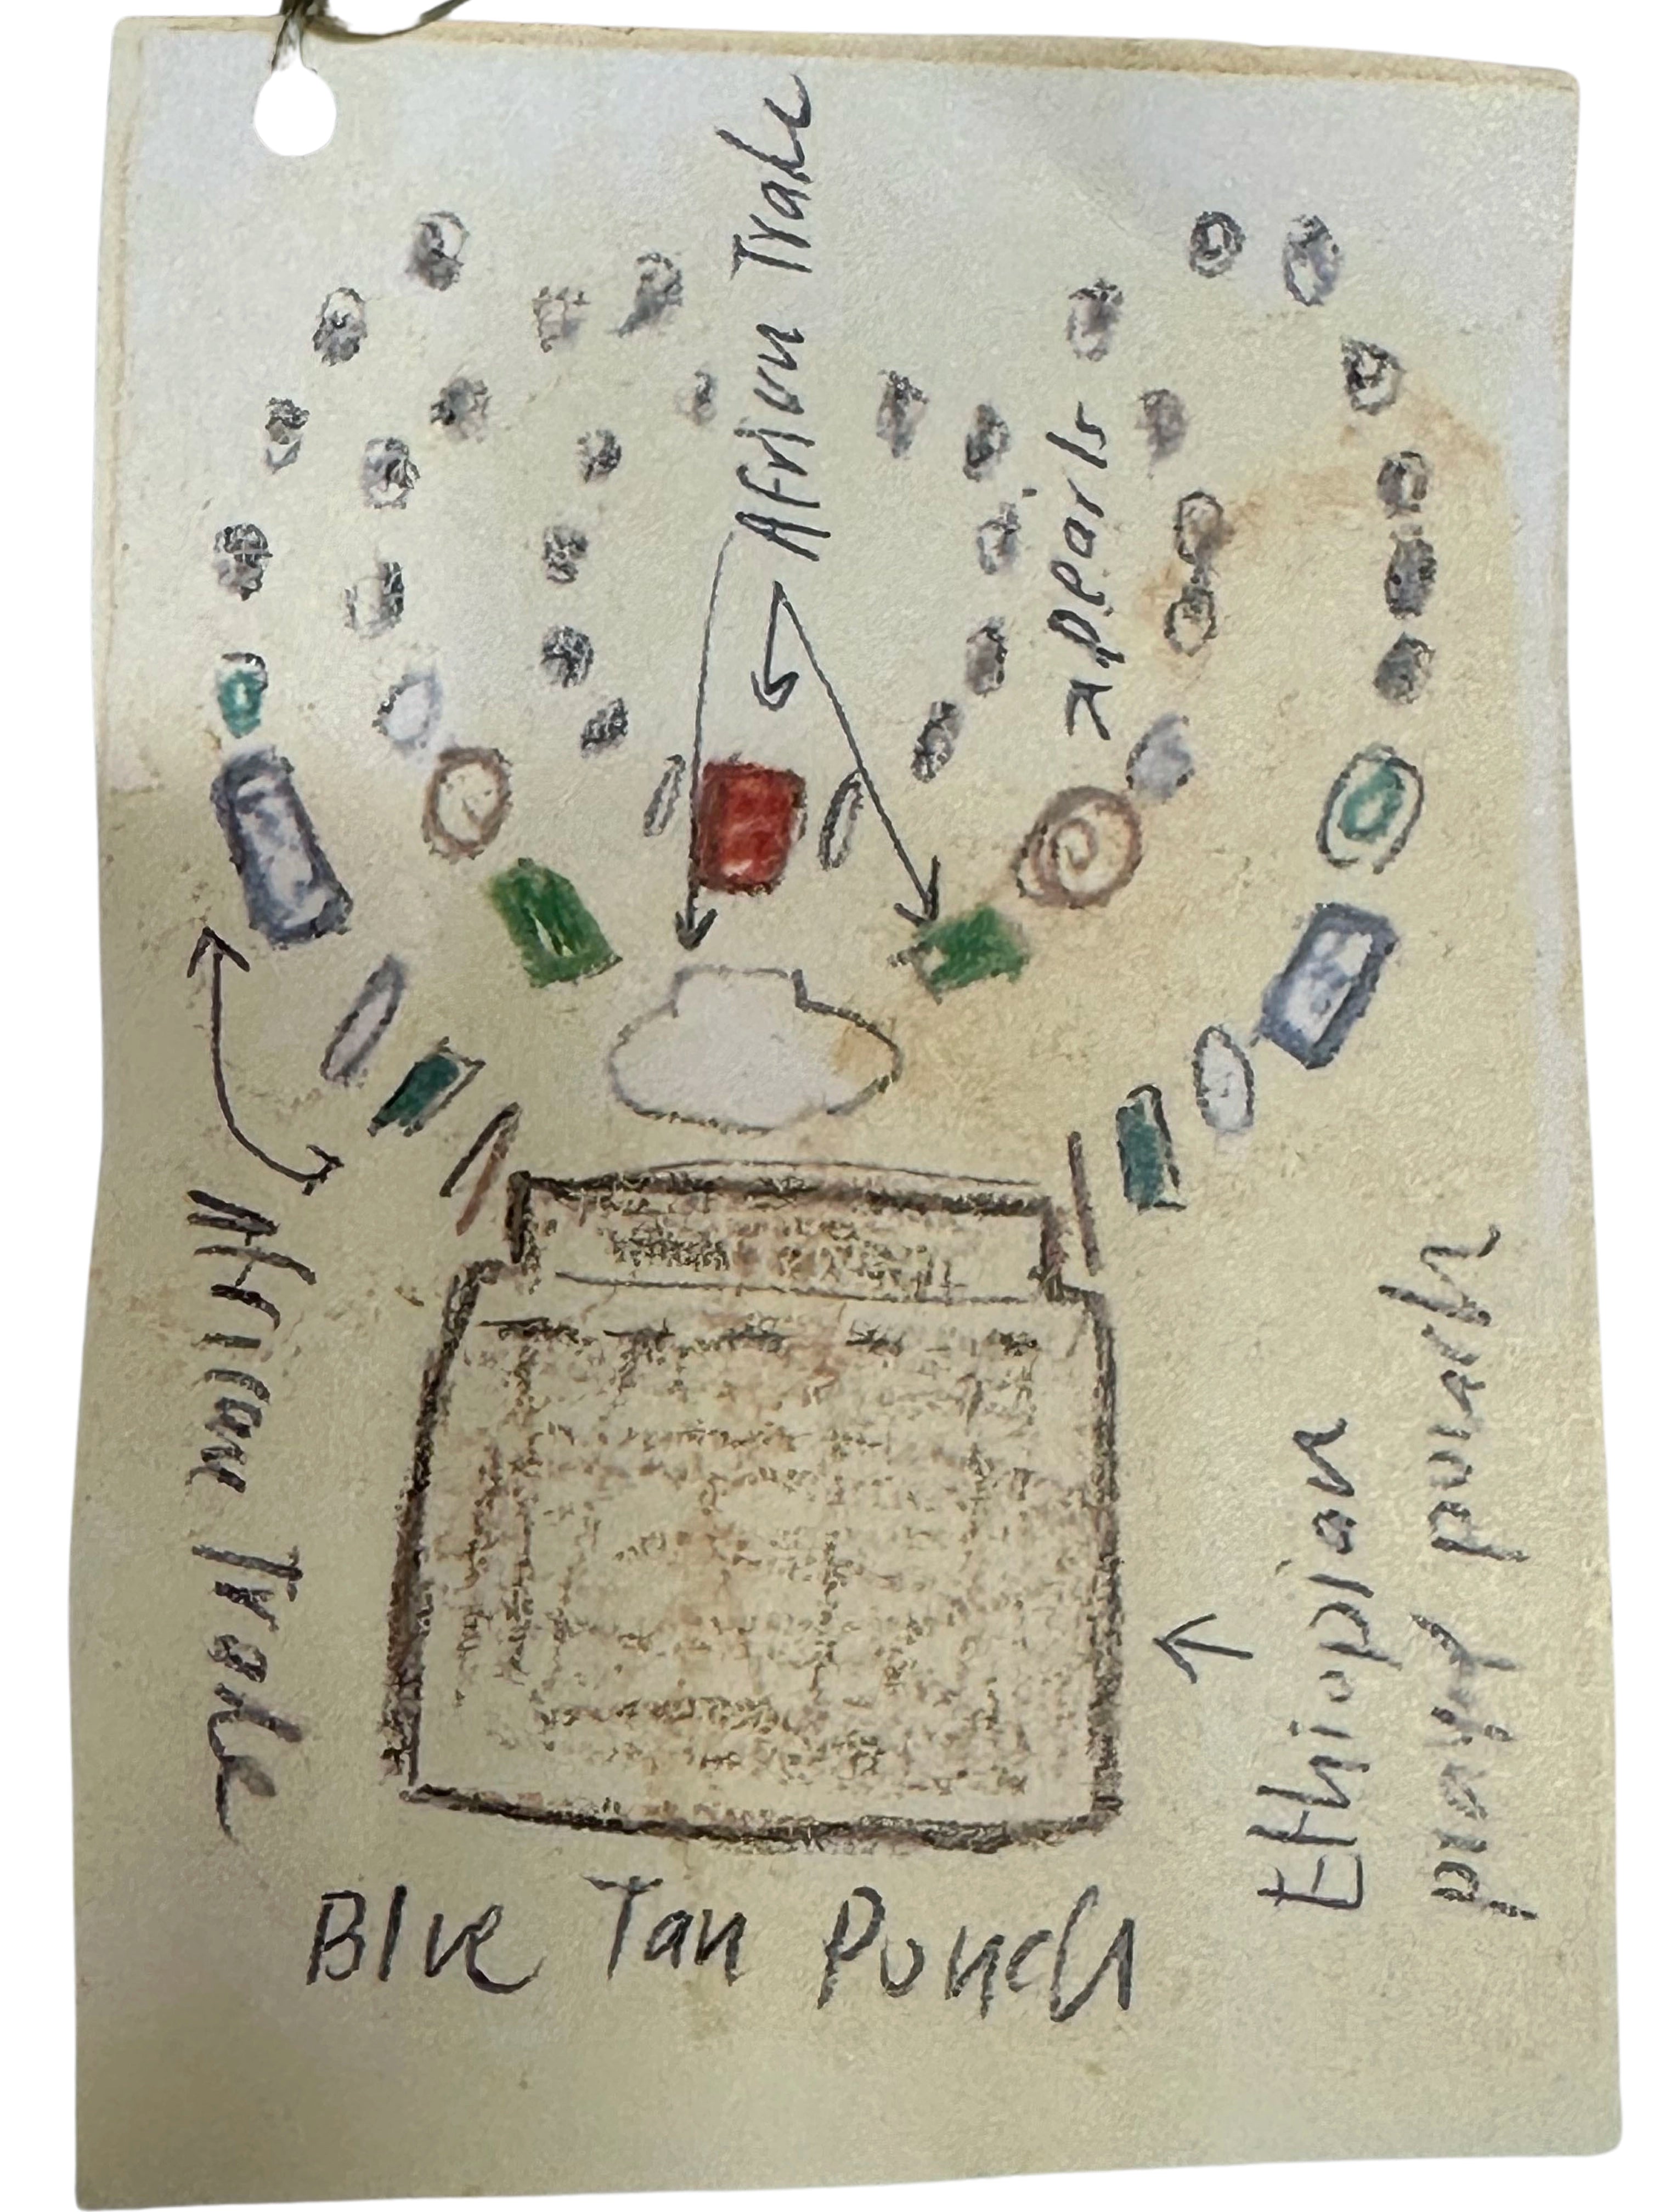 African Trade
pearls
African Trade
Ethiopian
prayr pouch
Blue Tan Pouch